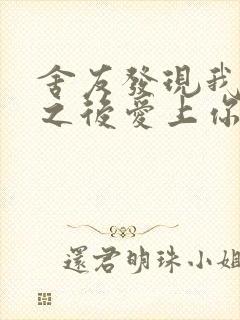 舍友發現我
之後愛上你
還君明珠小姐